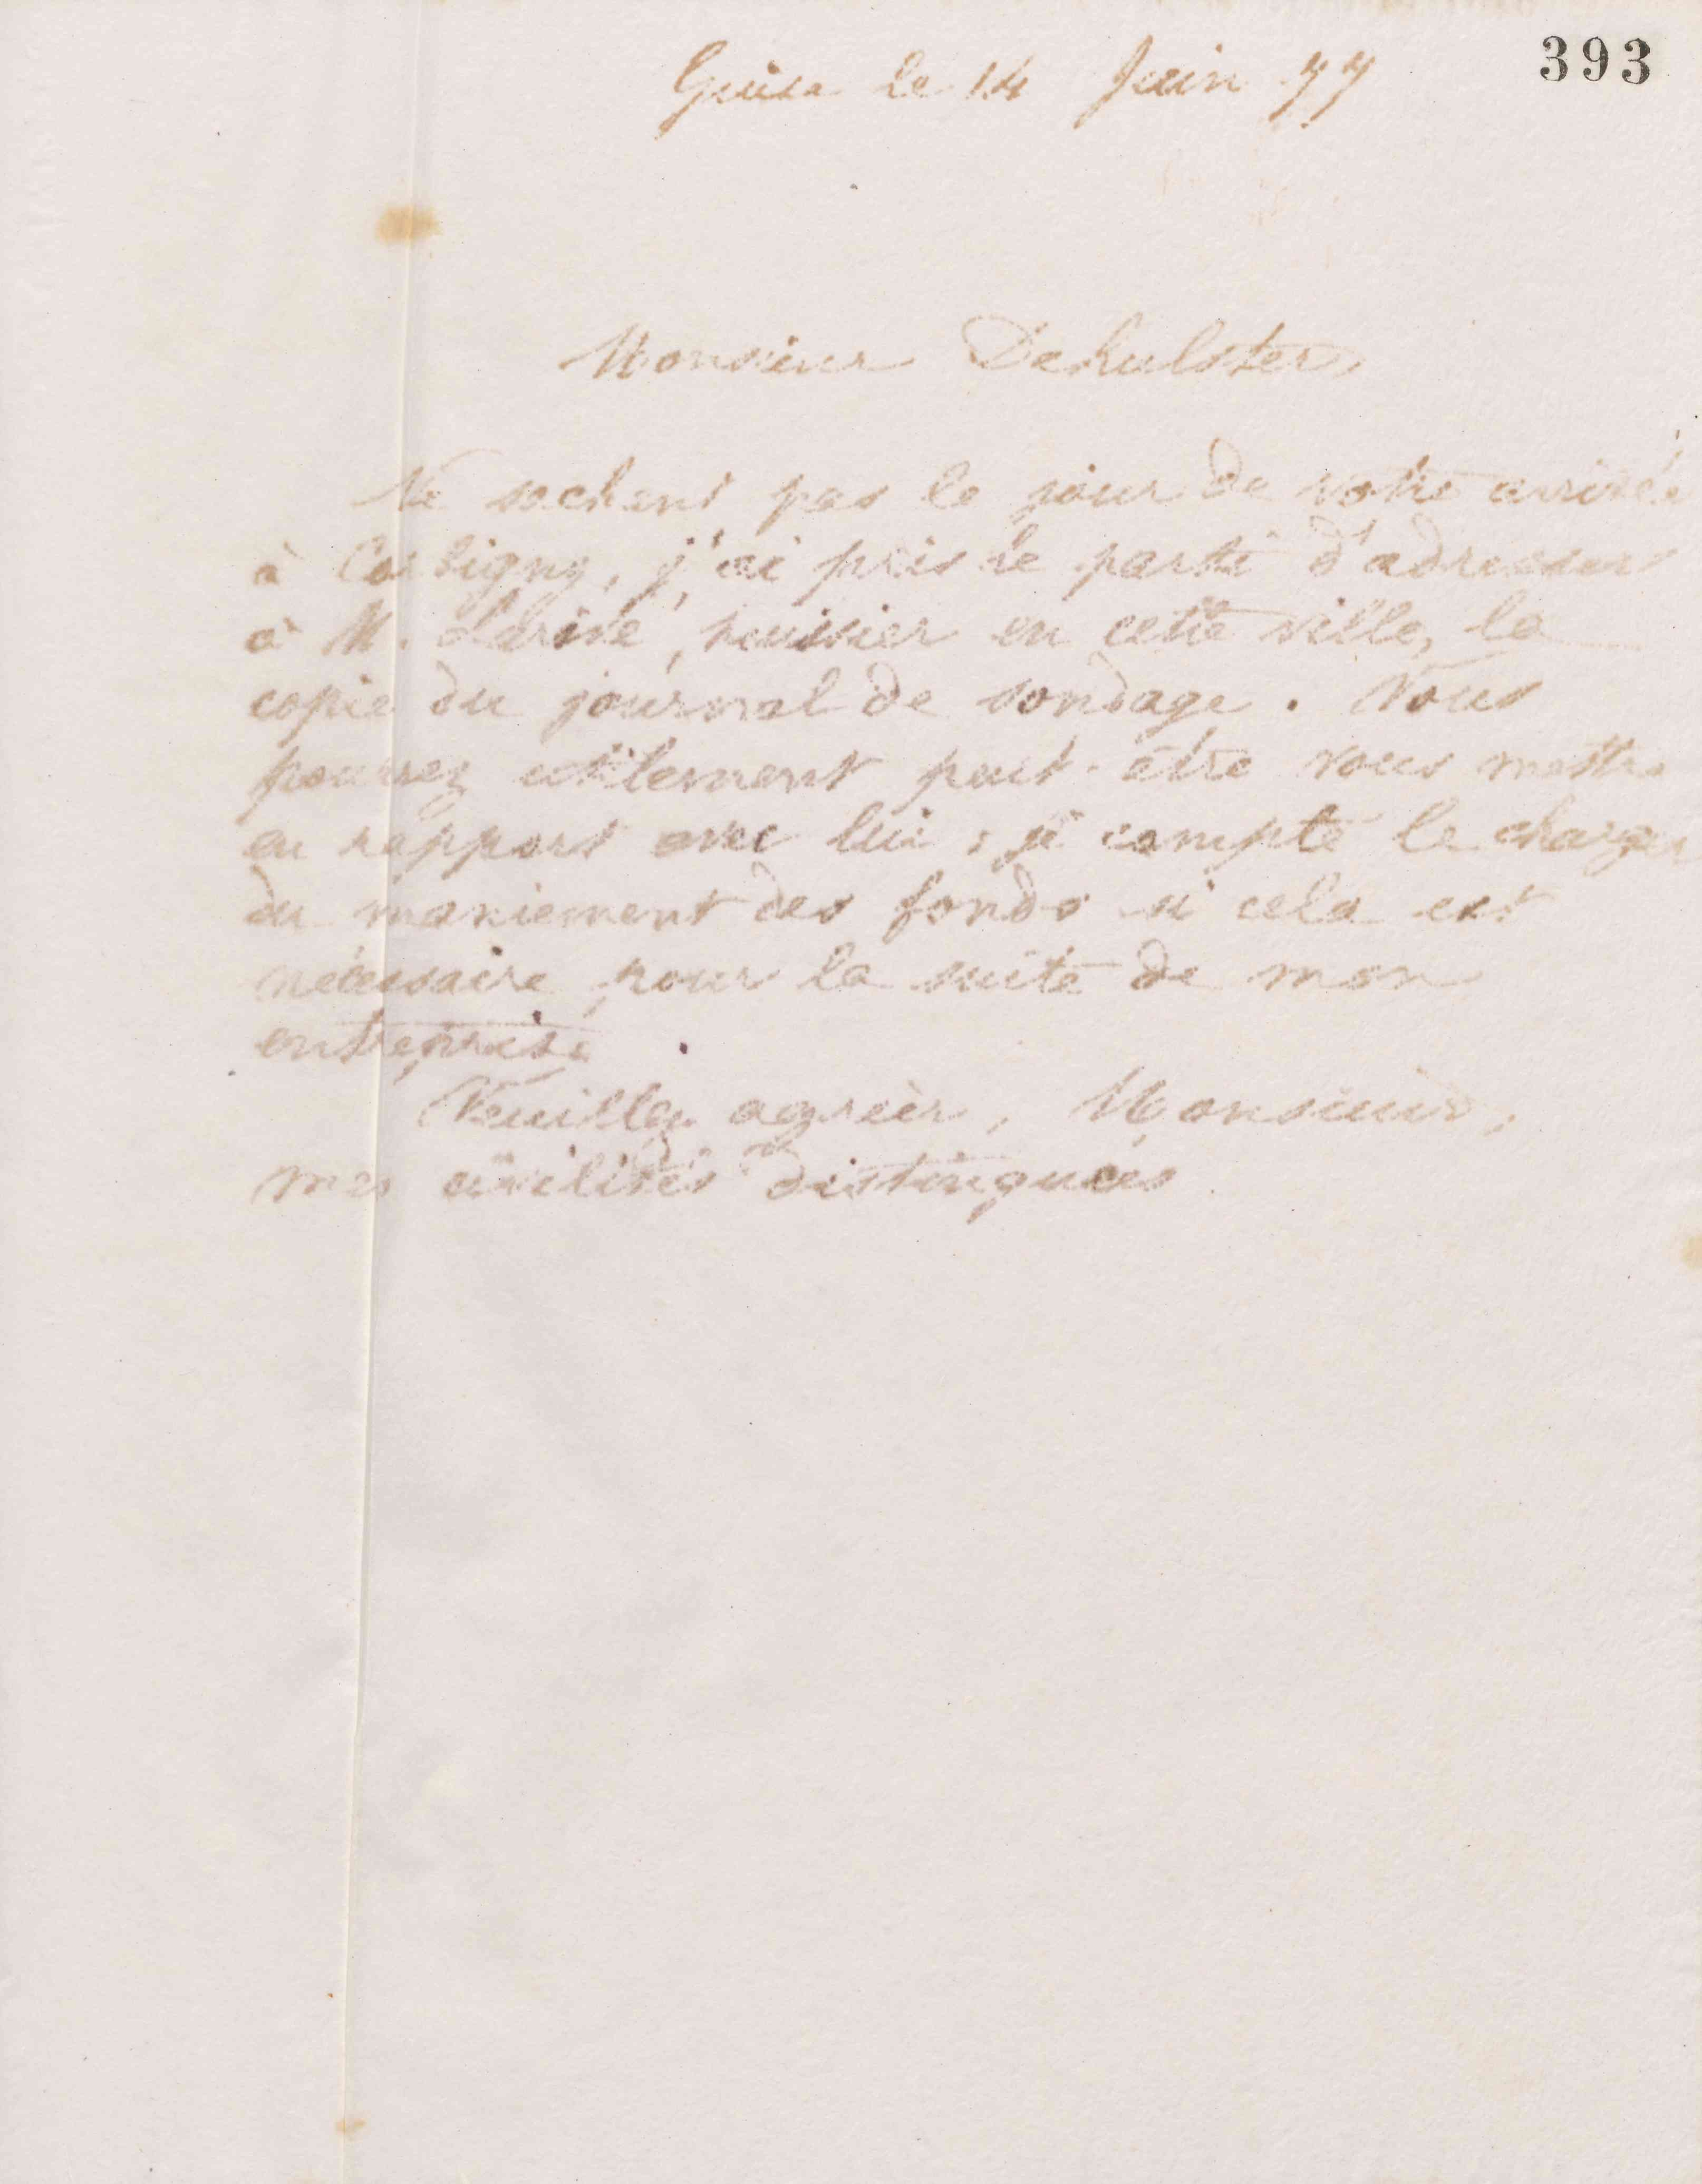 393
Guise le 14 Juin 77
Monsieur Dehulster,
Ne sachant pas le jour de votre arrivée
à Corbigny, j'ai pris le parti d'adresser
à M. Larivé, huissier en cette ville, la
copie du journal de sondage. Vous
pourrez utilement peut-être vous mettre
en rapport avec lui ; je compte le charger
du maniement des fonds si cela est
nécessaire pour la suite de mon
entreprise.
Veuillez agréer, Monsieur,
mes civilités distinguées.